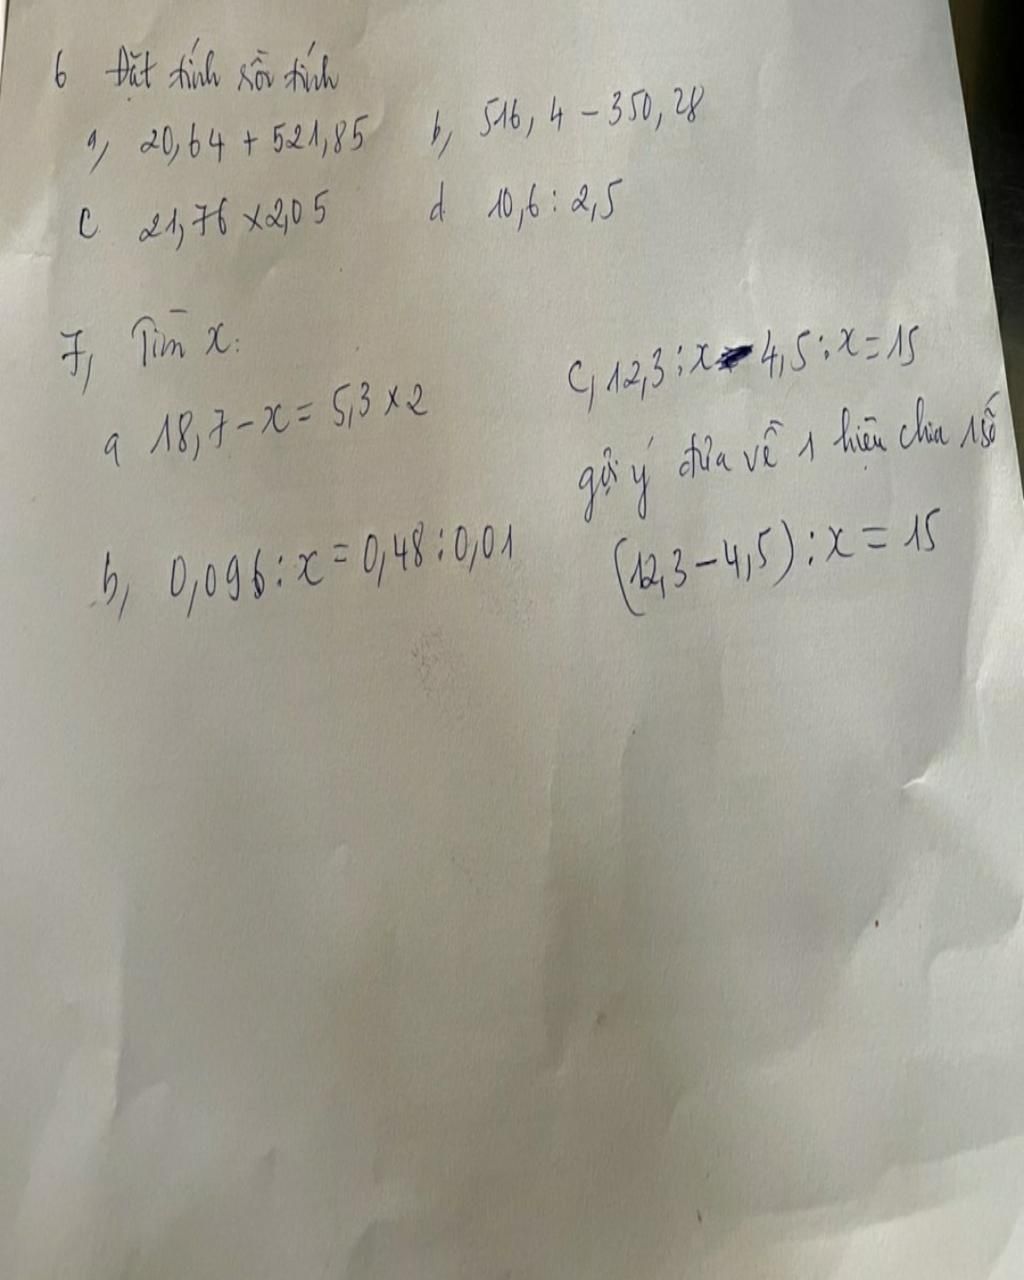 6 Đặt tính rồi tính
a, 20,64 + 521,85 b, 516,4 - 350,28
c 21,76 x 2,05 d 10,6 : 2,5
7, Tìm x:
a 18,7 - x = 5,3 x 2
b, 0,096 : x = 0,48 : 0,01
c, 12,3 : x - 4,5 : x = 15
gợi ý đưa về 1 hiệu chia 1 số
(12,3 - 4,5) : x = 15